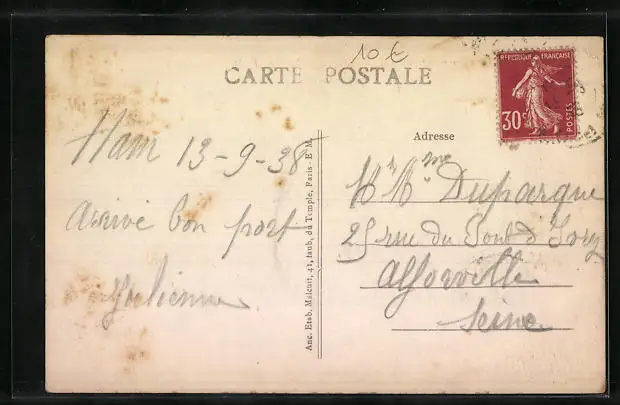 10 €
CARTE POSTALE
REPUBLIQUE FRANÇAISE
30c
POSTES
Adresse
Ham 13-9-38
arrivé bon port
Julienne
Anc. Etab. Malcuit, 41, faub. du Temple, Paris - E M
Mr Mme Duparque
25 rue du Pont d'Ivry
Alforville
Seine